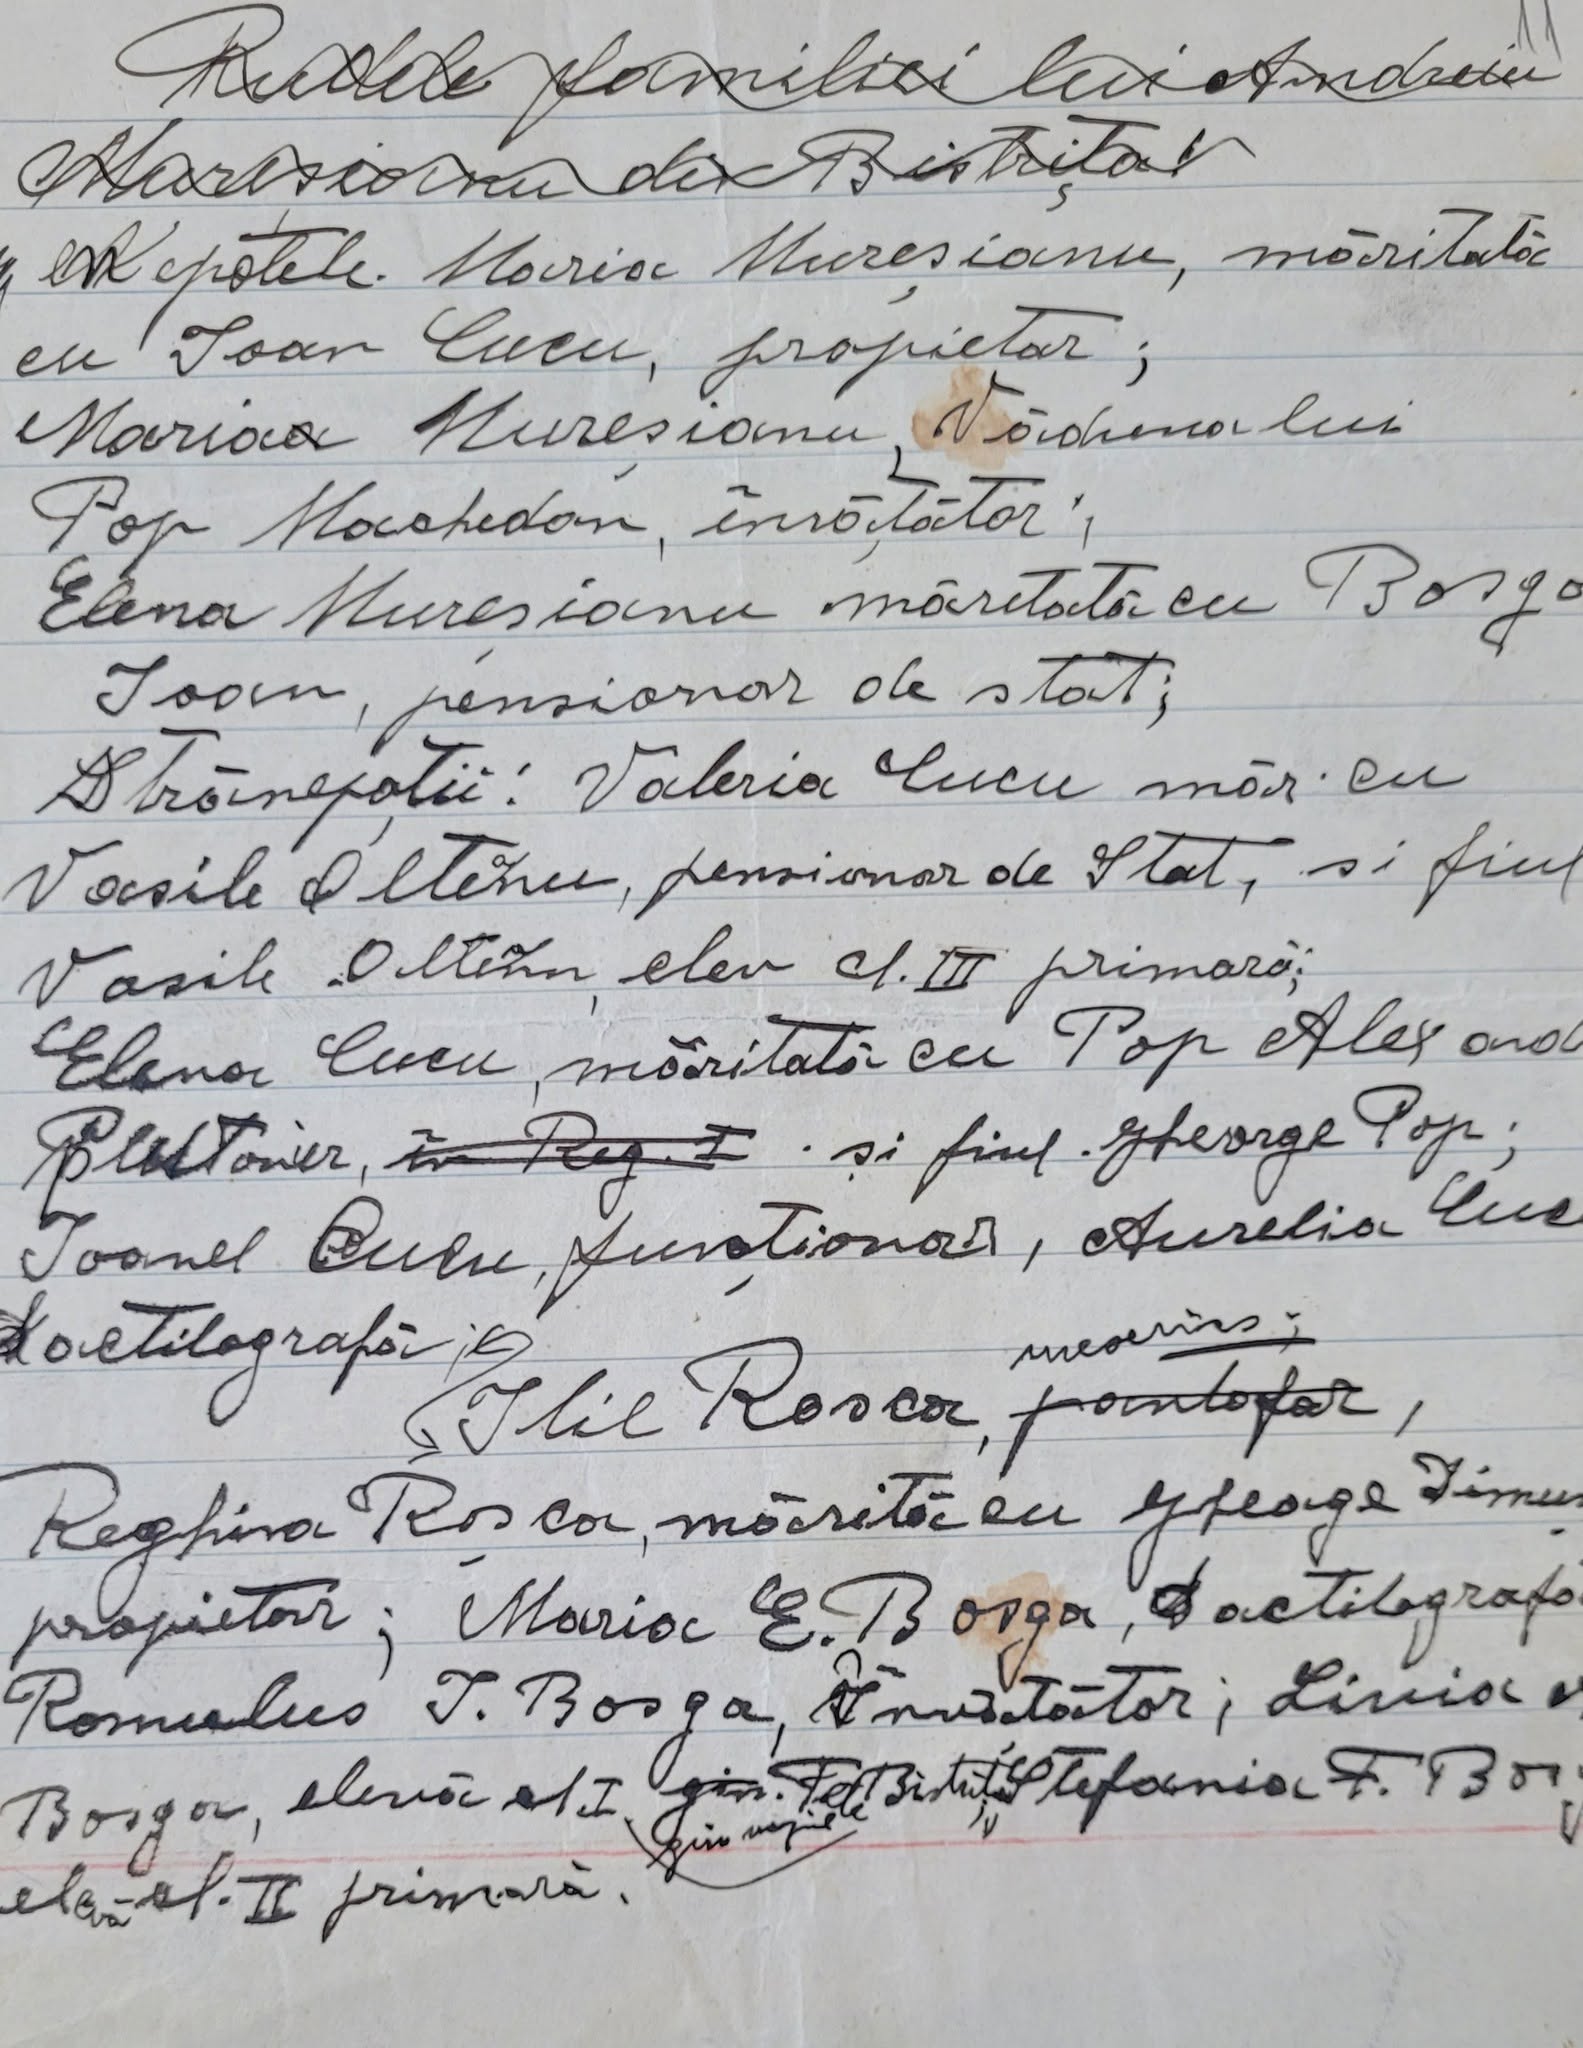 11
Rudele familiei lui Andreiu
Mureșianu din Bistrița
Nepotele. Maria Mureșianu, măritată
cu Ioan Cucu, propietar;
Maria Mureșianu, Văduva lui
Pop Machedan, învățător;
Elena Mureșianu măretată cu Bosga
Ioan, pensionar de stat;
Strănepoții: Valeria Cucu măr. cu
Vasile Oltěnu, pensionar de Stat, si fiul
Vasile Oltěnu, elev cl. III primară;
Elena Cucu, măritată cu Pop Alexand
Plutonier, în Reg. I. și fiul. Gheorge Pop;
Ioanel Cucu, funcționar, Aurelia Cucu
dactilografă;
meserias;
Ilie Rosca, pantofar,
Reghina Rosca, mărită cu Gheage
propietar; Maria E. Bosga, dactilografă
Romulus I. Bosga, Învățător; Livia
Bosga, elevă cl. I gin. Fete Bistrița, Stefania F. Bosg
gim
elevă cl. II primară.